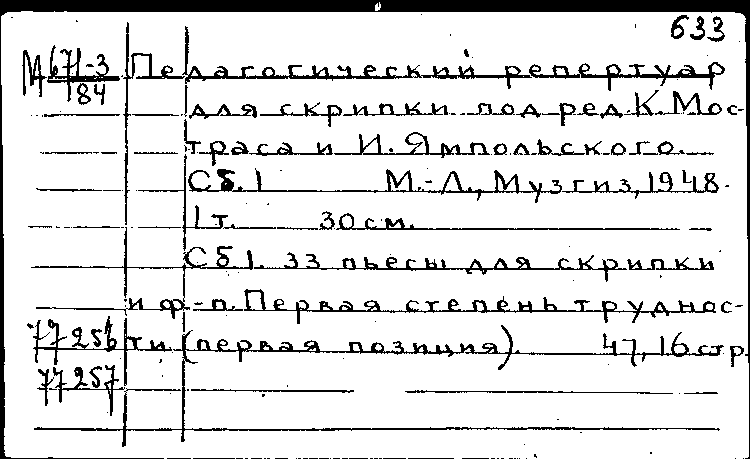 633
М 671-3 Педагогический репертуар
84 для скрипки под ред. К. Мос-
траса и И. Ямпольского.
Сб. 1 М.-Л., Музгиз, 1948.
1 т. 30 см.
Сб 1. 33 пьесы для скрипки
и ф.-п. Первая степень труднос-
77256 ти (первая позиция). 47, 16 стр.
77257